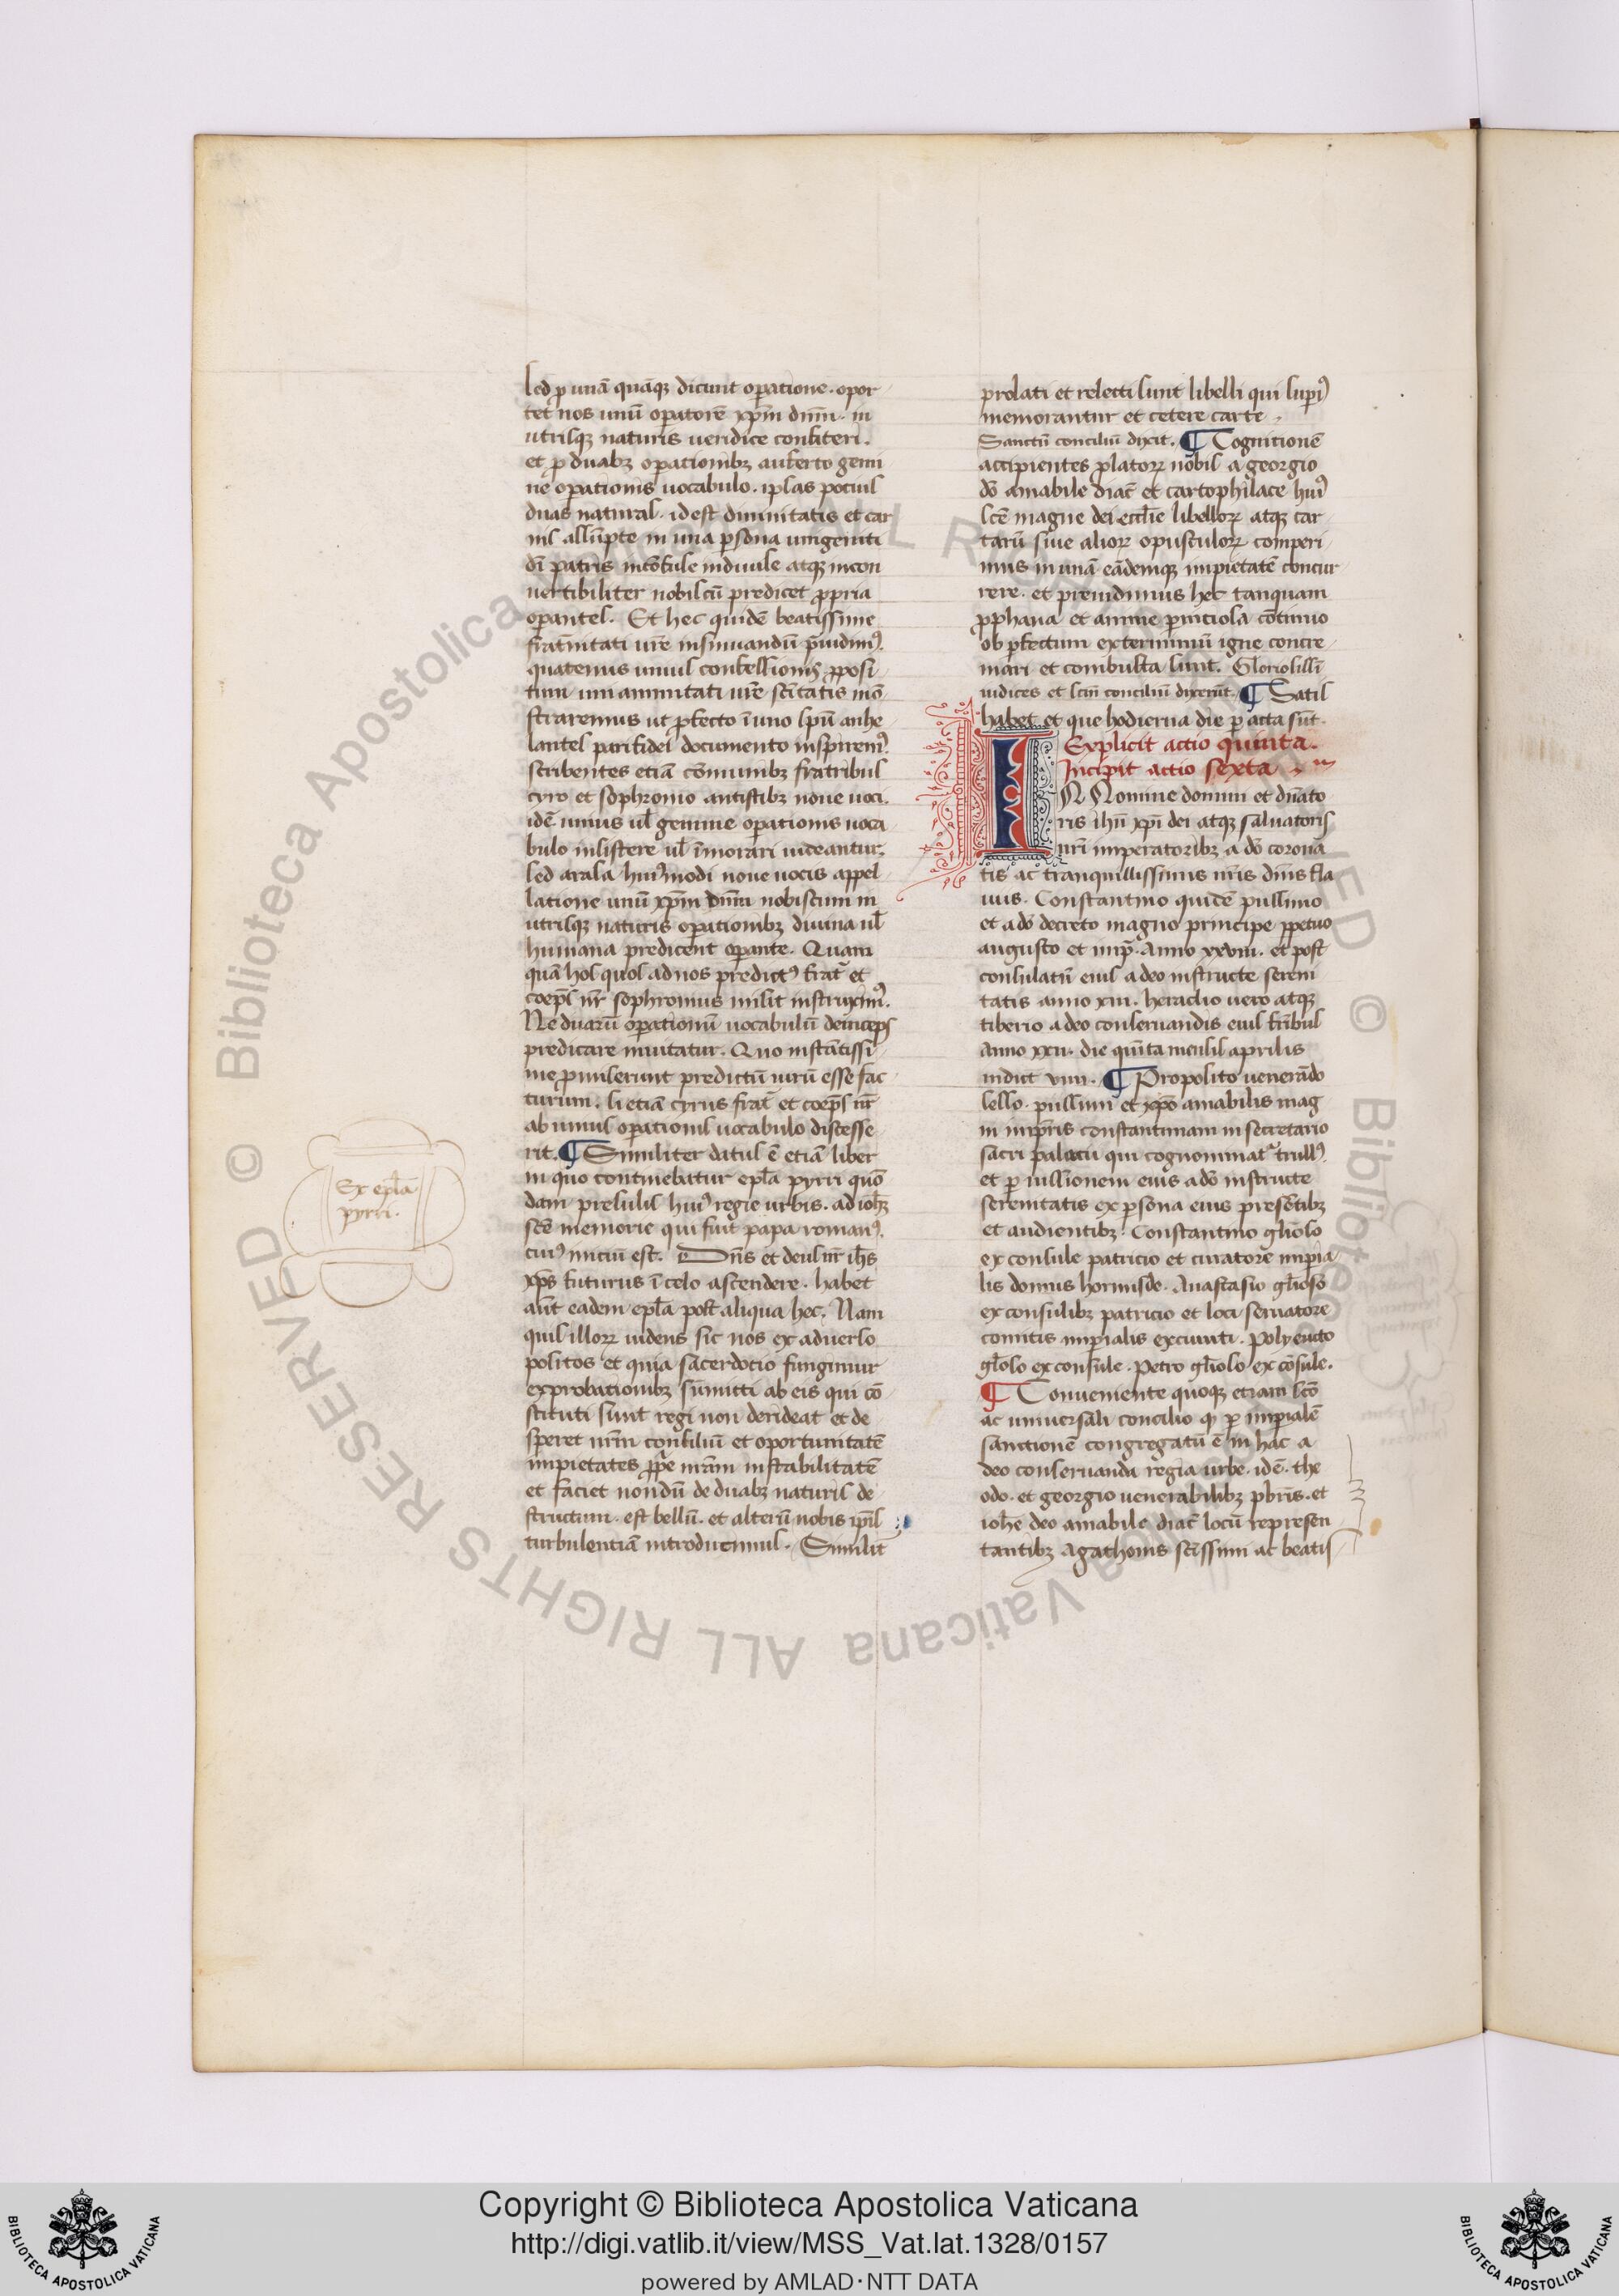 sed ꝑ unā quāqꝫ dicunt oꝑatione. opor
tet nos unū oꝑatorē xp̄m dn̄m. in
utrisqꝫ naturis veridice confiteri.
et ꝓ duabꝫ oꝑationibꝫ auferto gemi
ne oꝑationis uocabulo. ipsas pocius
duas naturas. id est divinitatis et car
nis assūpte in una ꝑsona unigeniti
dī patris incōfuse indivise atqꝫ incon
uertibiliter nobiscū predicet ꝓpria
oꝑantes. Et hec quidē beatissime
frat̄nitati vr̄e insinuandū ꝓuidimꝰ.
quatenus unius confessionis ꝓposi
tum unanimitati vr̄e sc̄itatis mō
straremus ut ꝓfecto ī uno spū anhe
lantes pari fidei documento inspiremꝰ.
scribentes etiā cōmunibꝫ fratribus
cyro et sophronio antistibꝫ noue uoci.
idē unius ul̄ gemine oꝑationis uoca
bulo insistere ul̄ īmorari uideantur.
sed arasa huiꝰmodi noue uocis appel
latione unū xp̄m dn̄m nobiscum in
utrisqꝫ naturis oꝑationibꝫ divina ul̄
humana predicent oꝑante. Quam
quā hos quos ad nos predictꝰ frat̄ et
coep̄s nr̄ sophronius misit instruximꝰ.
Ne duarū oꝑationū uocabulū deinceps
predicare invitatur. Quo instātissi
me ꝓmiserunt predictū uirū esse fac
turum. si etiā cyrus frat̄ et coep̄s nr̄
ab unius oꝑationis uocabulo discesse
rit. ¶ Similiter datus ē etiā liber
in quo continebatur epl̄a pyrri quō
dam presulis huiꝰ regie urbis. ad ioh̄ꝫ
sc̄e memorie qui fuit papa romanꝰ.
cuiꝰ iniciū est. Dn̄s et deus nr̄ ih̄s
xp̄s futurus ī celo ascendere. habet
aūt eadem epl̄a post aliqua hec. Nam
quis illoꝝ uidens sic nos ex aduerso
positos et quia sacerdocio fungimur
exprobationibꝫ sūmitti ab eis qui cō
stituti sunt regi non derideat et de
speret nr̄m consiliū et oportunitatē
impietates ꝓp̄e nr̄am instabilitatē
et faciet nondū de duabꝫ naturis de
structum. est bellū. et alterū nobis ip̄is
turbulentiā introducimus. Similit̄
Ex epl̄a
pyrri.
prolati et relecti sunt libelli qui supeꝰ
memorantur et cetere carte.
Sanctū conciliū dixit. ¶ Cognitionē
accipientes ꝓlatoꝝ nobis a georgio
dō amabile diac̄ et cartophilace huiꝰ
sc̄e magne dei eccl̄ie libelloꝝ atqꝫ car
tarū siue alioꝝ opusculoꝝ comperi
mus in unā eādemqꝫ impietatē concur
rere. et preuidimus hec tanquam
ꝓphana et anime ꝑniciosa cōtinuo
ob ꝑfectum exterminiū igne concre
mari et combusta sunt. Gloriosissī
iudices et sc̄m conciliū dixerūt. ¶ Satis
habet et que hodierna die ꝑ acta sūt.
Explicit actio quinta.
Incipit actio sexta
IN Nomine domini et dn̄ato
ris ih̄u xp̄i dei atqꝫ saluatoris
nr̄i imperatoribꝫ a dō coronā
tis ac tranquillissimis nr̄is dn̄is fla
uiis. Constantino quidē piissimo
et a dō decreto magno principe ꝑpetuo
augusto et imꝑ. Anno xxviii. et post
consulatū eius a deo instructe sereni
tatis anno xiii. heraclio uero atqꝫ
tiberio a deo conseruandis eius fr̄ibus
anno xxii. die quīta mensis aprilis
indict viiii. ¶ Preposito uenerādo
sello. piissimi et xp̄o amabilis mag
ni imꝑris constantini in secretario
sacri palacii qui cognominat̄ trullꝰ.
et ꝑ iussionem eius a dō instructe
serenitatis ex ꝑsona eius presētibꝫ
et audientibꝫ. Constantino gl̄ioso
ex consule patricio et curatore imꝑia
lis domus hormisde. Anastasio gl̄ioso
ex consulibꝫ patricio et loci seruatore
comitis imꝑialis excubiti. Polyeucto
gl̄ioso ex consule. Petro gl̄ioso ex cōsule.
¶ Conueniente quoqꝫ etiam sc̄o
ac uniuersali concilio qͥ ꝑ imꝑialē
sanctionē congregatū ē in hac a
deo conseruanda regia urbe. idē. the
odo. et georgio uenerabilibꝫ pbr̄is. et
ioh̄e deo amabile diac̄ locū represen
tantibꝫ Agathonis sc̄issimi ac beatis
Copyright © Biblioteca Apostolica Vaticana
http://digi.vatlib.it/view/MSS_Vat.lat.1328/0157
powered by AMLAD·NTT DATA